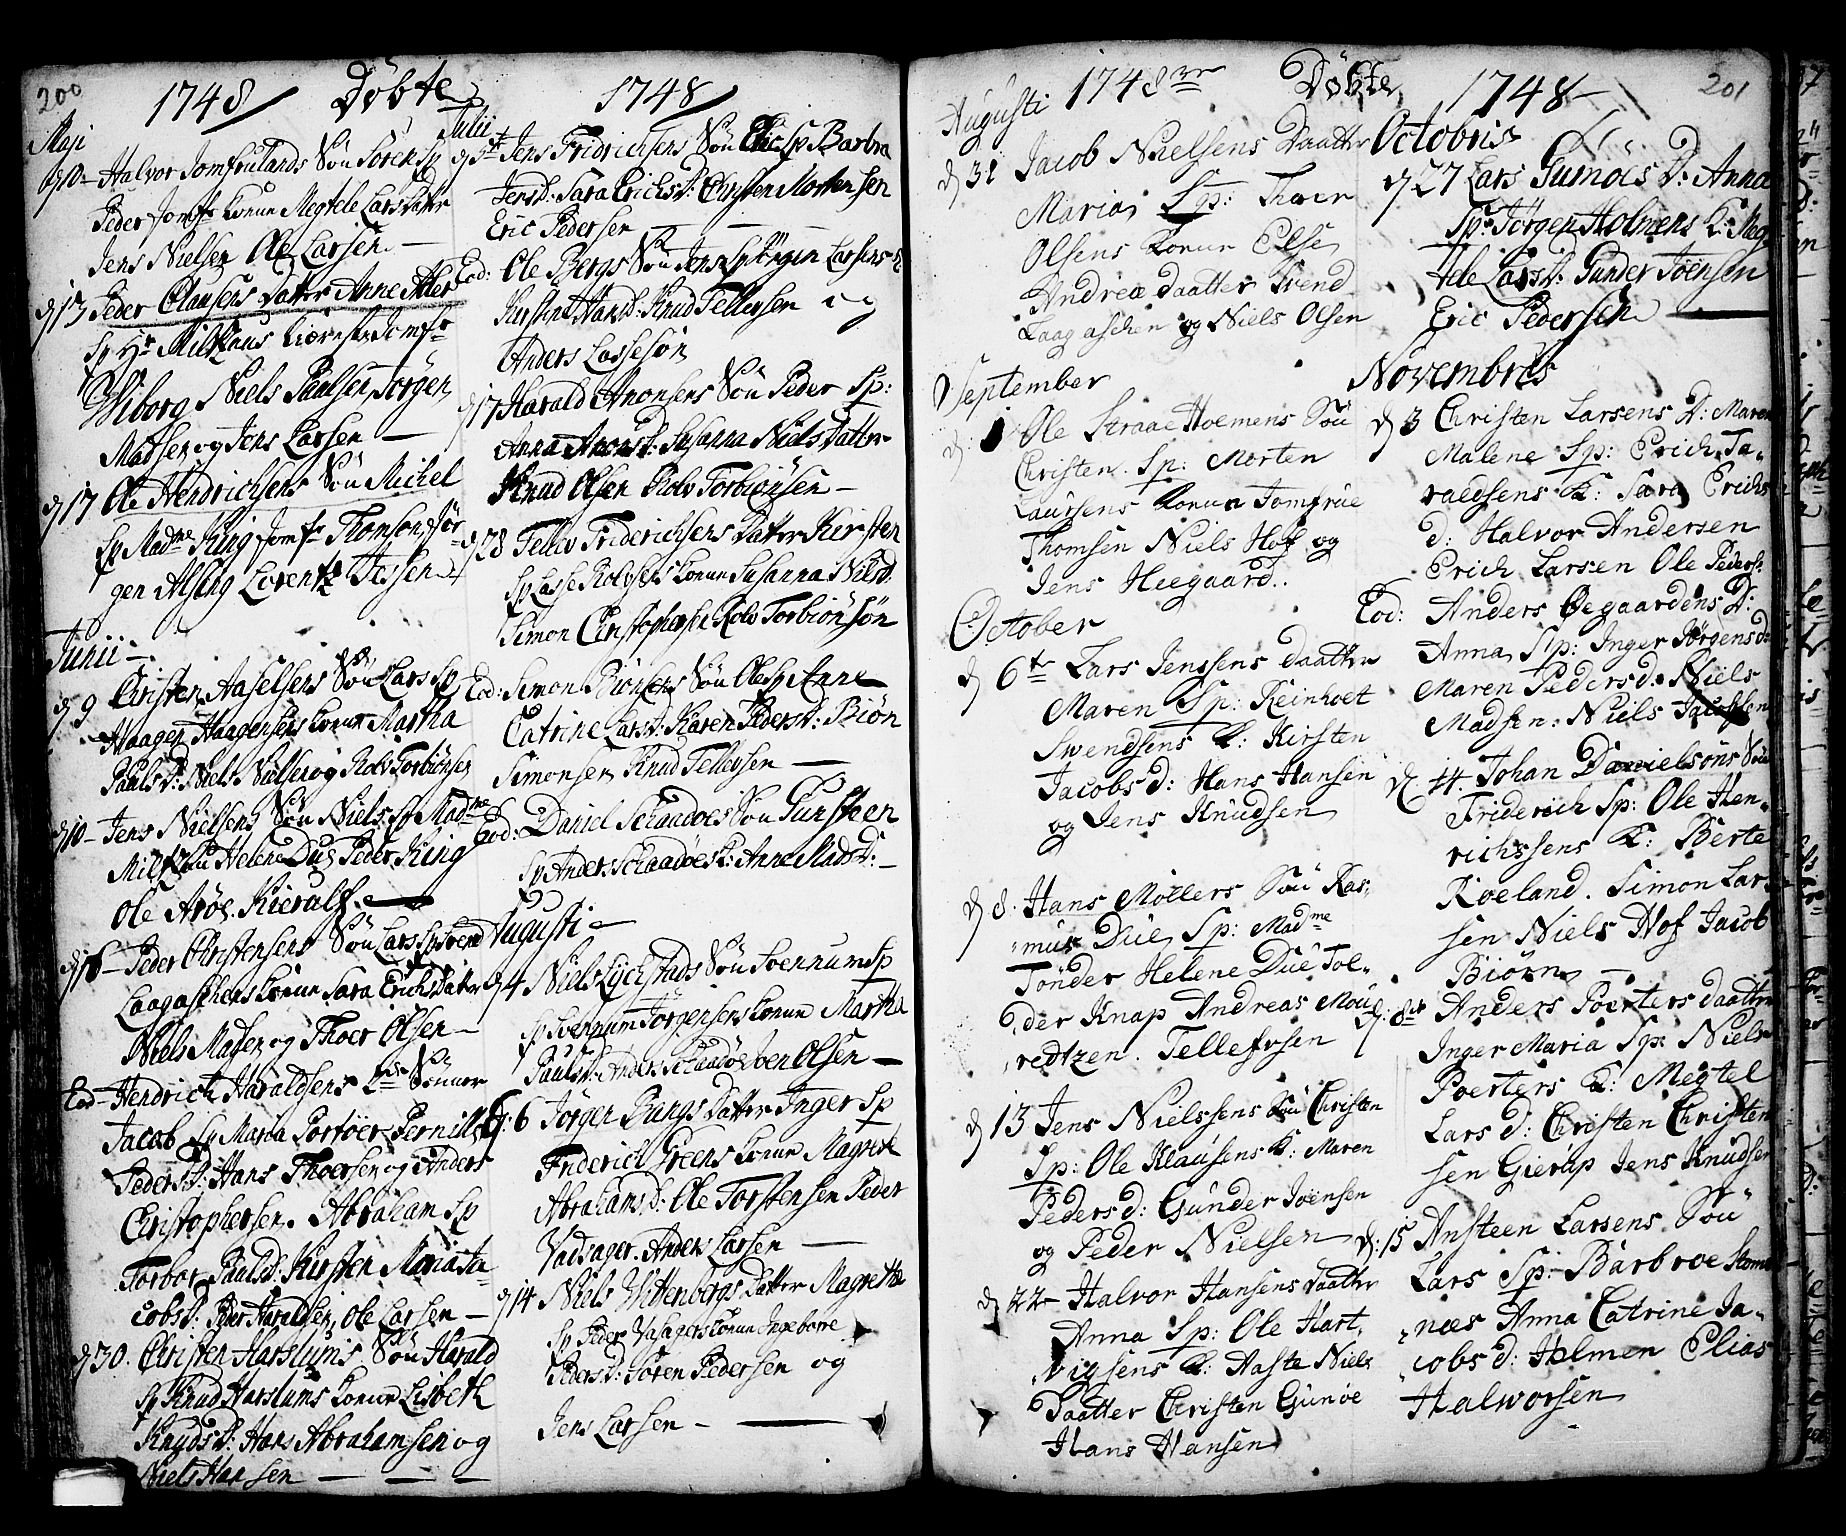 200
1748 Döbte
Maji
d 10 - Halvor Jomfrulands Sön Sören Sp
Peder Jomfr Konun Megtele Larsdatter
Jens Nielsen Ole Larsen
d 13 Peder Clausens Datter Anne
Sp Hr Miltzous Jomfr
Wiborg Niels Paulsen Jörgen
Madsen og Jens Larsen
d 17 Ole Hendrichsens Sön Michel
Sp Madme King Jomfr Thomsen Jör-
gen Alsing Lorentz Jessen
Junii
d 9 Christen Aaselsens Sön Lars Sp
Haagen Haagensens Konun Martha
Pauls D: Niels Nielsen og Rolv Torbiönsen
d 10 - Jens Nielsens Sön Niels Sp Madme
Miltzou Helene Due Peder King
Ole Aröe. Kierulf.
d 16 - Peder Christensens Sön Lars Sp Svend
Laagaschens Konun Sara Erichsdatter
Niels Madsen og Thoer Olsen
Eod - Hendrich Haraldsens 2de Sönner
Jacob Sp Maria Portöer Pernille
Peders D: Hans Thoersen og Anders
Christophersen. Abraham Sp
Torbor Paulsd: Kirsten Maria Ja-
cobs D: Peder Haraldsen, Ole Larsen
d 30. Christen Harslums Sön Harald
Sp Knud Harslums Konun Lisbeth
Knuds D: Hans Abrahamsen og
Niels Hansen
1748
Julii
d 5te Jens Fridrichsens Sön Eric Sp Barbra
Jensd: Sara Erichsd: Christen Mortensen
Eric Pedersen
Eod: Ole Bergs Sön Jens Sp Jörgen Larsens K
Kirstine Hansd: Knud Tellevsen og
Anders Lassesön
d 17 Harald Anonsens Sön Peder Sp:
Anna Anonsd: Susanna Nielsdatter
Knud Olsen Rolv Torbiönsen
d 28 Tellev Friderichsens Datter Kirsten
Sp Lasse Rolvsens Konun Susanna Nilsd:
Simon Christophersen Rolv Torbiönsön
Eod: Simon Biönsens Sön Ole Sp Anne
Catrine Larsd: Karen Pedersd: Biön
Simonsen Knud Tellevsen
Eod: Daniel Schaadöes Sön Gunsteen
Sp Anders Schaadöes K: Anne Madsd:
Augusti
d 4 Niels Lychstads Sön Svennum Sp
Sp Svennum Jörgensens Konun Martha
Paulsd: Anders Schaadöe Joen Olsen
d: 6 Jörgen Bungs Datter Inger Sp
Friderich Greens Konun Magrete
Abrahamsd: Ole Torstensen Peder
Vadsager. Anders Larsen
d 14 Niels Wittenbergs Datter Magrethe
Sp Peder Vasagers Konun Ingeborre
Peders D: Sören Pedersen og
Jens Larsen
1748 Döbte
Augusti
d 31 Jacob Nielsens Daatter
Maria, Sp: Thoer
Olsens Konun Else
Andrea daatter Trend
Laagaschen og Niels Olsen
September
d 1 Ole Straae Hoemens Sön
Christen. Sp: Morten
Laursens Konun Jomfrue
Thomsen Niels Hof og
Jens Heegaard.
October
d 6te Lars Jenssens daatter
Maren Sp: Reinholt
Swendsens K: Kirsten
Jacobs d: Hans Hansen
og Jens Knudsen
d 8. Hans Möllers Sön Ras-
mus Due Sp: Madme
Tönder Helene Due Toe-
der Knap Andreas Mou-
redtzen. Tellefsen
d 13 Jens Nielssens Sön Christen
Sp: Ole Klausens K: Maren
Peders d: Gunder Joensen
og Peder Nielsen
d 22 Halvor Hansens daatter
Anna Sp: Ole Hart-
vigsens K: Aaste Niels
Daatter Christen Gunöe
Hans Hansen
1748 201
Octobris
d 27 Lars Gumöes D: Anna
Sp: Jörgen Holmens K: Meg-
tele Larsd: Gunder Joensen
Eric Pedersen
Novembris
d 3 Christen Larsens D: Maren
Malene Sp: Erich Ta-
raldsens K: Sara Erichs
d: Halvor Andersen
Erich Larsen Ole Peders:
Eod: Anders Öegaardens D:
Anna, Sp: Inger Jörgensd:
Maren Pedersd: Niels
Madsen: Niels Jacobsen
d 14. Johan Danielsöns Sön
Friderich Sp: Ole Hen-
richssens K: Berte
Roeland. Simon Lar-
sen Niels Hof Jacob
Biörn
d: Anders Poerters daatter
Inger Maria Sp: Niels
Poerters K: Megtel
Lars d: Christen Christen-
sen Gierup Jens Knudsen
d: 15 Ansteen Larsens Sön
Lars Sp: Barbroe
næs Anna Catrine Ja-
cobs d: Halmen Elias
Halworsen